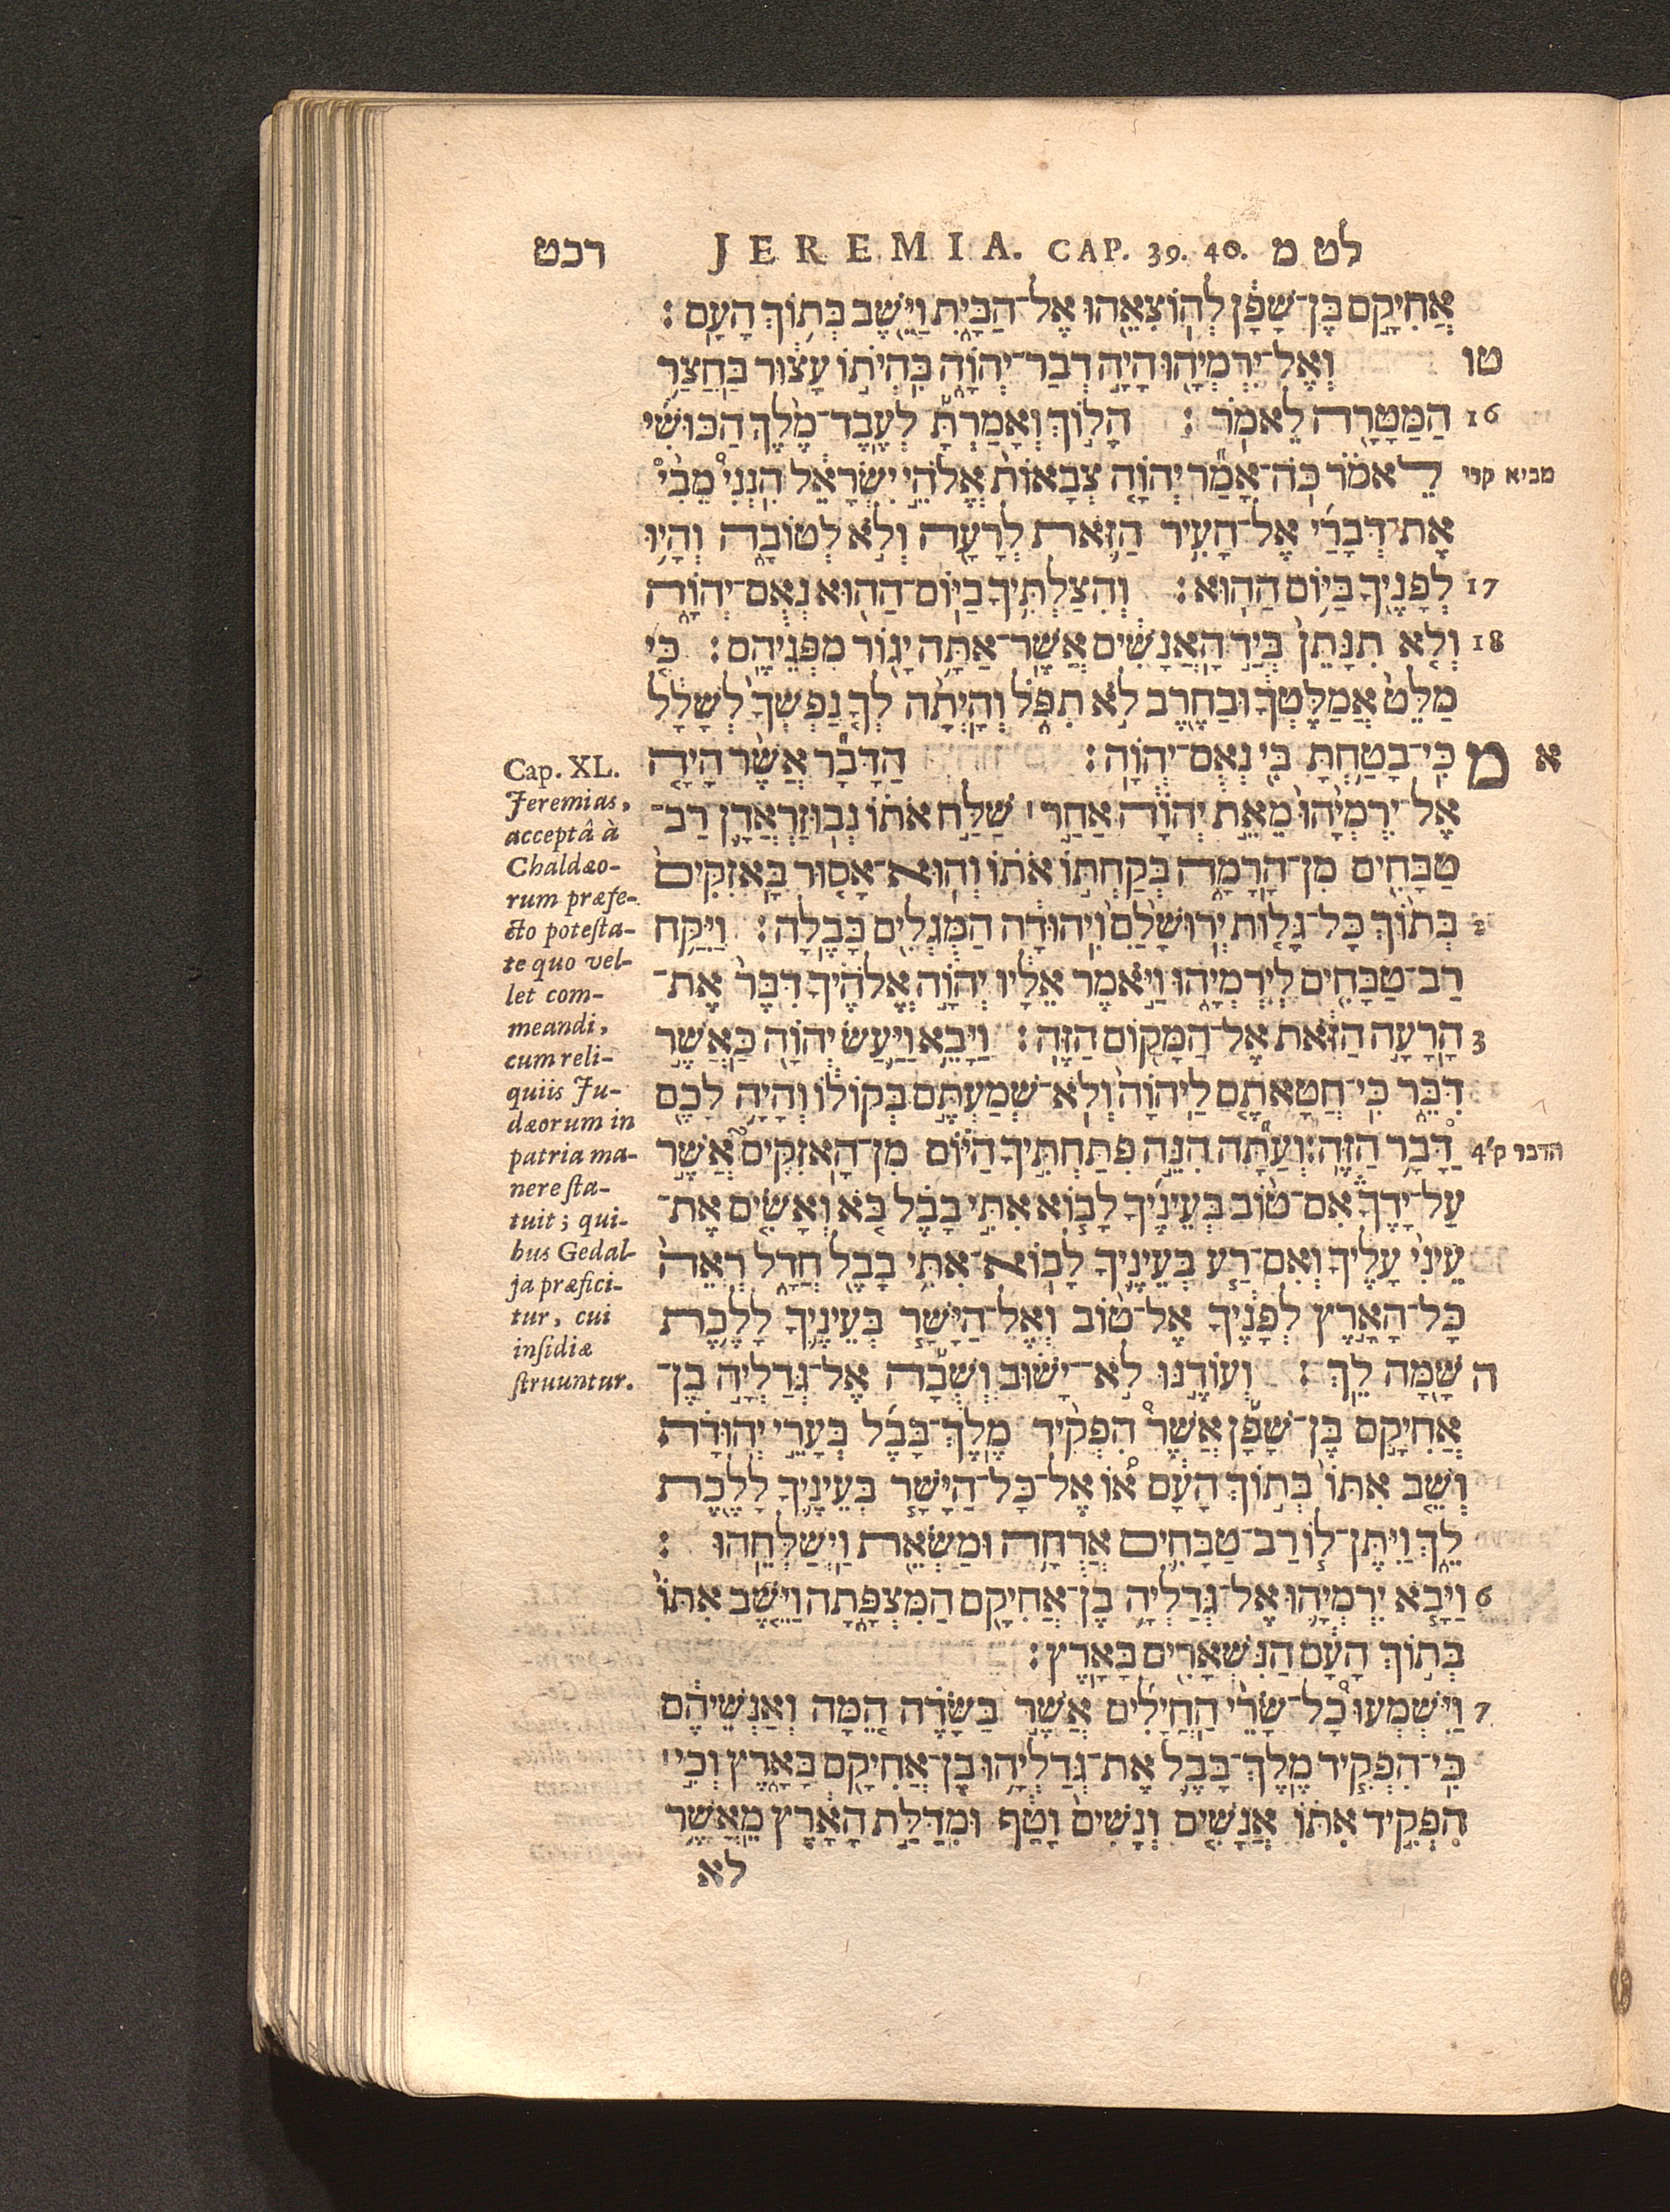 רכט JEREMIA. CAP. 39. 40. לט מ
אֲחִיקָם בֶּן־שָׁפָן לְהוֹצִאֵהוּ אֶל־הַבָּיִת וַיֵּשֶׁב בְּתוֹךְ הָעָם:
טו וְאֶל־יִרְמְיָהוּ הָיָה דְבַר־יְהוָה בִּהְיֹתוֹ עָצוּר בַּחֲצַר
16 הַמַּטָּרָה לֵאמֹר: הָלוֹךְ וְאָמַרְתָּ לְעֶבֶד־מֶלֶךְ הַכּוּשִׁי
לֵאמֹר כֹּה־אָמַר יְהוָה צְבָאוֹת אֱלֹהֵי יִשְׂרָאֵל הִנְנִי מֵבִי מביא קרי
אֶת־דְּבָרַי אֶל־הָעִיר הַזֹּאת לְרָעָה וְלֹא לְטוֹבָה וְהָיוּ
17 לְפָנֶיךָ בַּיּוֹם הַהוּא: וְהִצַּלְתִּיךָ בַיּוֹם־הַהוּא נְאֻם־יְהוָה
18 וְלֹא תִנָּתֵן בְּיַד הָאֲנָשִׁים אֲשֶׁר־אַתָּה יָגוֹר מִפְּנֵיהֶם: כִּי
מַלֵּט אֲמַלֶּטְךָ וּבַחֶרֶב לֹא תִפֹּל וְהָיְתָה לְךָ נַפְשְׁךָ לְשָׁלָל
א מ כִּי־בָטַחְתָּ בִּי נְאֻם־יְהוָה: הַדָּבָר אֲשֶׁר הָיָה
אֶל־יִרְמְיָהוּ מֵאֵת יְהוָה אַחַר׀ שַׁלַּח אֹתוֹ נְבוּזַרְאֲדָן רַב־
טַבָּחִים מִן־הָרָמָה בְּקַחְתּוֹ אֹתוֹ וְהוּא־אָסוּר בָּאזִקִּים
2 בְּתוֹךְ כָּל־גָּלוּת יְרוּשָׁלִַם וִיהוּדָה הַמֻּגְלִים בָּבֶלָה: וַיִּקַּח
רַב־טַבָּחִים לְיִרְמְיָהוּ וַיֹּאמֶר אֵלָיו יְהוָה אֱלֹהֶיךָ דִּבֶּר אֶת־
3 הָרָעָה הַזֹּאת אֶל־הַמָּקוֹם הַזֶּה: וַיָּבֵא וַיַּעַשׂ יְהוָה כַּאֲשֶׁר
דִּבֵּר כִּי־חֲטָאתֶם לַיהוָה וְלֹא־שְׁמַעְתֶּם בְּקוֹלוֹ וְהָיָה לָכֶם
הדבר ק׳ 4 דָּבָר הַזֶּה: וְעַתָּה הִנֵּה פִתַּחְתִּיךָ הַיּוֹם מִן־הָאזִקִּים אֲשֶׁר
עַל־יָדֶךָ אִם־טוֹב בְּעֵינֶיךָ לָבוֹא אִתִּי בָבֶל בֹּא וְאָשִׂים אֶת־
עֵינִי עָלֶיךָ וְאִם־רַע בְּעֵינֶיךָ לָבוֹא־אִתִּי בָבֶל חֲדָל רְאֵה
כָּל־הָאָרֶץ לְפָנֶיךָ אֶל־טוֹב וְאֶל־הַיָּשָׁר בְּעֵינֶיךָ לָלֶכֶת
ה שָׁמָּה לֵךְ: וְעוֹדֶנּוּ לֹא־יָשׁוּב וְשֻׁבָה אֶל־גְּדַלְיָה בֶן־
אֲחִיקָם בֶּן־שָׁפָן אֲשֶׁר הִפְקִיד מֶלֶךְ־בָּבֶל בְּעָרֵי יְהוּדָה
וְשֵׁב אִתּוֹ בְּתוֹךְ הָעָם אוֹ אֶל־כָּל־הַיָּשָׁר בְּעֵינֶיךָ לָלֶכֶת
לֵךְ וַיִּתֶּן־לוֹ רַב־טַבָּחִים אֲרֻחָה וּמַשְׂאֵת וַיְשַׁלְּחֵהוּ:
6 וַיָּבֹא יִרְמְיָהוּ אֶל־גְּדַלְיָה בֶן־אֲחִיקָם הַמִּצְפָּתָה וַיֵּשֶׁב אִתּוֹ
בְּתוֹךְ הָעָם הַנִּשְׁאָרִים בָּאָרֶץ:
7 וַיִּשְׁמְעוּ כָל־שָׂרֵי הַחֲיָלִים אֲשֶׁר בַּשָּׂדֶה הֵמָּה וְאַנְשֵׁיהֶם
כִּי־הִפְקִיד מֶלֶךְ־בָּבֶל אֶת־גְּדַלְיָהוּ בֶן־אֲחִיקָם בָּאָרֶץ וְכִי׀
הִפְקִיד אִתּוֹ אֲנָשִׁים וְנָשִׁים וָטָף וּמִדַּלַּת הָאָרֶץ מֵאֲשֶׁר
לא
Cap. XL.
Jeremias,
acceptâ à
Chaldæo-
rum præfe-
cto potesta-
te quo vel-
let com-
meandi,
cum reli-
quiis Ju-
dæorum in
patria ma-
nere sta-
tuit; qui-
bus Gedal-
ja præfici-
tur, cui
insidiæ
struuntur.